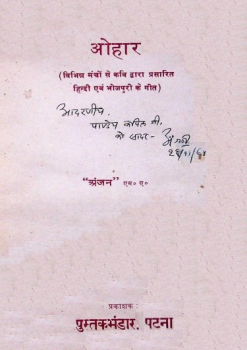 ओहार
(विभिन्न मंचों से कवि द्वारा प्रसारित
हिन्दी एवं भोजपुरी के गीत)
आदरणीय
पाण्डेय कपिल जी
को सादर-
"अंजन" एम० ए०
प्रकाशक :
पुस्तकभंडार, पटना